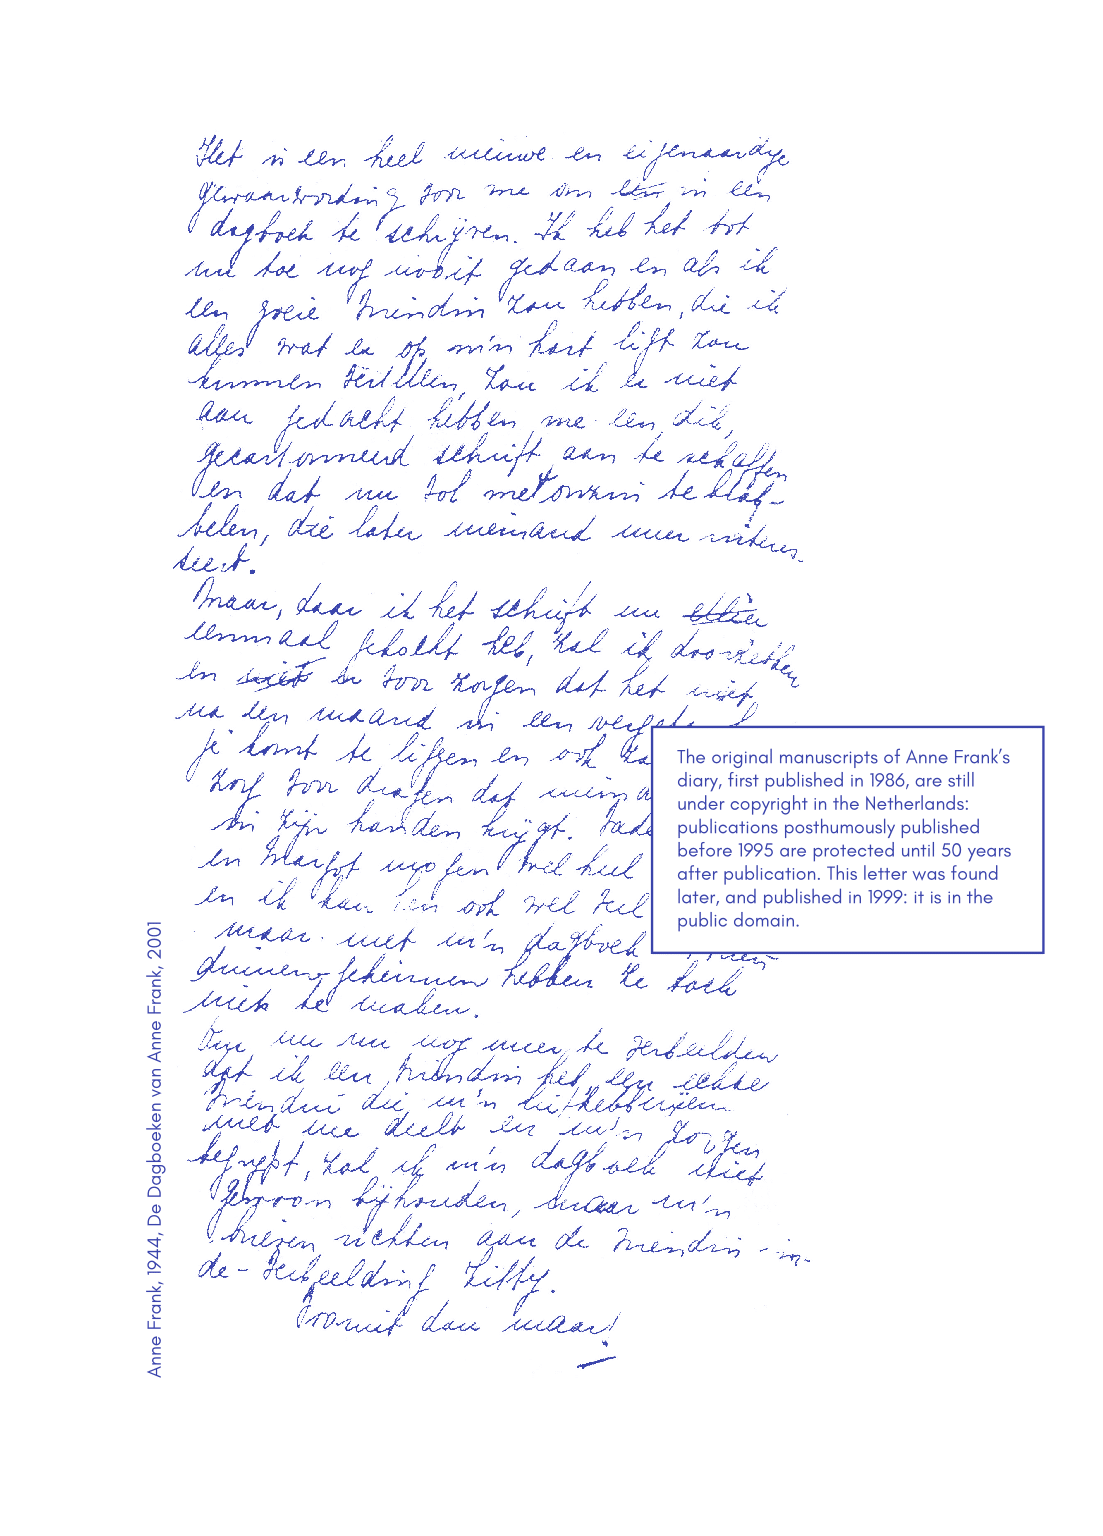 Het is een heel nieuwe en eigenaardige
gewaarwording voor me om een in een
dagboek te schrijven. Ik heb het tot
nu toe nog nooit gedaan en als ik
een goeie vriendin zou hebben, die ik
alles wat er op m'n hart ligt zou
kunnen vertellen, zou ik er niet
aan gedacht hebben me een dik,
gecartonneerd schrift aan te schaffen
en dat nu vol met onzin te blab-
belen, die later niemand meer interes-
seert.
Maar, daar ik het schrift nu
eenmaal gekocht heb, zal ik doorzetten
en niet er voor zorgen dat het niet
na een maand in een
je komt te liggen en ook
zorg voor dragen dat
in zijn handen krijgt.
en Margot mogen wel heel
en ik kan hen ook wel veel
maar met m'n dagboek
geheimen hebben ze toch
niets te maken.
Om me nu nog meer te verbeelden
dat ik een vriendin heb, een echte
vriendin die m'n liefhebberijen
met me deelt en m'n zorgen
begrijpt, zal ik m'n dagboek niet
gewoon bijhouden, maar m'n
brieven richten aan de vriendin-in-
de-verbeelding Kitty.
Vooruit dan maar!
The original manuscripts of Anne Frank's
diary, first published in 1986, are still
under copyright in the Netherlands:
publications posthumously published
before 1995 are protected until 50 years
after publication. This letter was found
later, and published in 1999: it is in the
public domain.
Anne Frank, 1944, De Dagboeken van Anne Frank, 2001